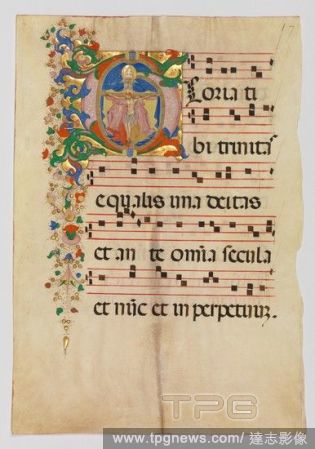 17
Gloria ti
bi trinitas
equalis una deitas
et an te omĩa secula
et nũc et in perpetuuz.
TPG
www.tpgnews.com/ 達志影像